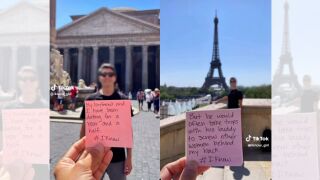 TikTok
My boyfriend and
I have been
dating for a
year and a
half.
#I Know
But he would
often take trips
with his buddy
to screw other
women behind
my back.
#I Know
TikTok